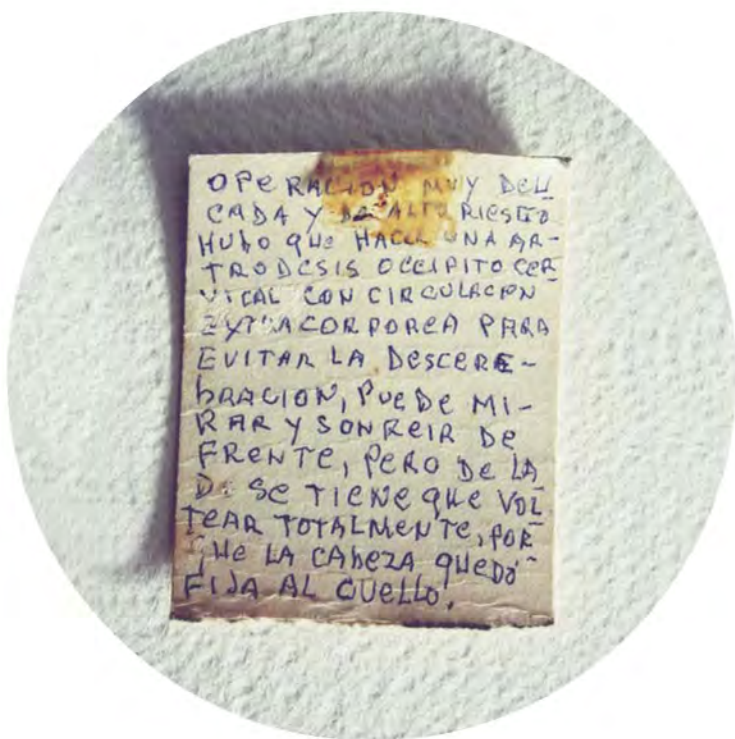 OPERACION MUY DELI
CADA Y DE ALTO RIESGO
HUBO QUE HACER UNA AR-
TRODESIS OCCIPITO CER
VICAL CON CIRCULACION
EXTRACORPOREA PARA
EVITAR LA DESCERE-
BRACION, PUEDE MI-
RAR Y SONREIR DE
FRENTE, PERO DE LA
DO SE TIENE QUE VOL
TEAR TOTALMENTE, POR
QUE LA CABEZA QUEDÓ
FIJA AL CUELLO.